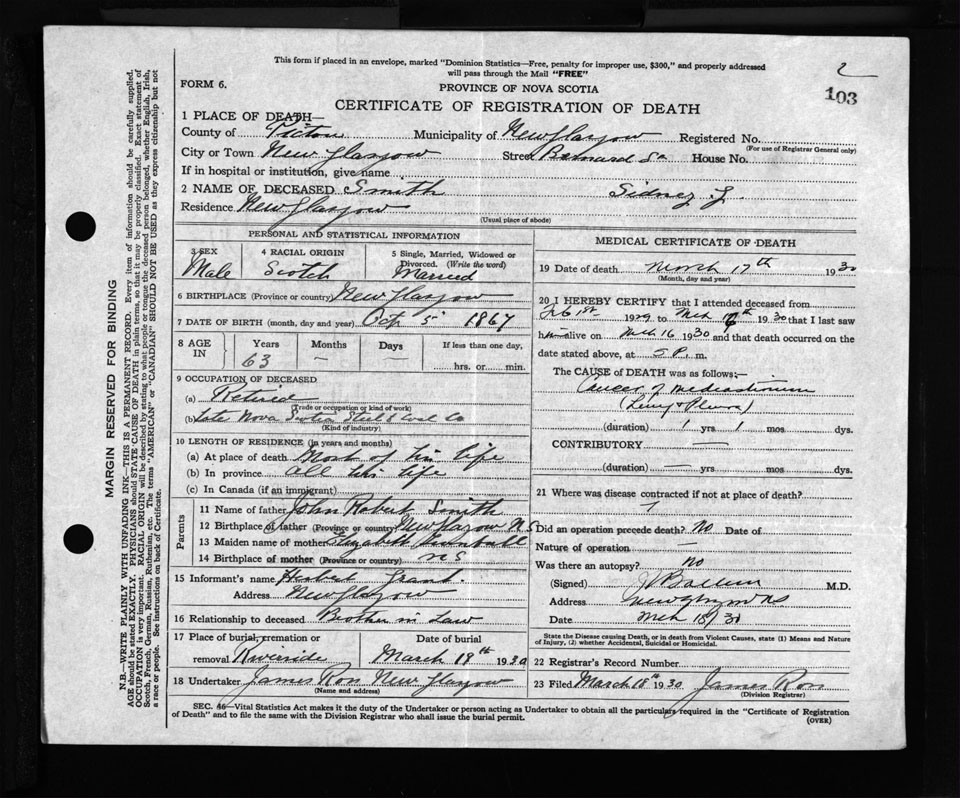 This form if placed in an envelope, marked "Dominion Statistics—Free, penalty for improper use, $300," and properly addressed
will pass through the Mail "FREE"
2
FORM 6.
PROVINCE OF NOVA SCOTIA
103
CERTIFICATE OF REGISTRATION OF DEATH
1 PLACE OF DEATH—
County of Pictou Municipality of New Glasgow Registered No.
(For use of Registrar General only)
City or Town New Glasgow Street House No.
If in hospital or institution, give name
2 NAME OF DECEASED Smith Sidney J.
Residence New Glasgow
(Usual place of abode)
PERSONAL AND STATISTICAL INFORMATION
3 SEX 4 RACIAL ORIGIN 5 Single, Married, Widowed or
Divorced. (Write the word)
Male Scotch Married
6 BIRTHPLACE (Province or country) New Glasgow
7 DATE OF BIRTH (month, day and year) Oct 5 1867
8 AGE IN Years Months Days If less than one day,
63 — — hrs. or min.
9 OCCUPATION OF DECEASED
(a) Retired
(Trade or occupation or kind of work)
(b) Late Nova Scotia Steel & Coal Co
(Kind of industry)
10 LENGTH OF RESIDENCE (in years and months)
(a) At place of death Most of his life
(b) In province all his life
(c) In Canada (if an immigrant)
Parents
11 Name of father John Robert Smith
12 Birthplace of father (Province or country) New Glasgow N S
13 Maiden name of mother Elizabeth
14 Birthplace of mother (Province or country) N S
15 Informant's name Grant.
Address New Glasgow
16 Relationship to deceased Brother in Law
17 Place of burial, cremation or Date of burial
removal Riverside March 19th 1930
18 Undertaker James Ross New Glasgow
(Name and address)
MEDICAL CERTIFICATE OF DEATH
19 Date of death March 17th 1930
(Month, day and year)
20 I HEREBY CERTIFY that I attended deceased from
Feb 1st 1929 to Mch 1930 that I last saw
him alive on Mch 16 1930 and that death occurred on the
date stated above, at 5 P. m.
The CAUSE of DEATH was as follows:—
Cancer of mediastinum
(Lung & Pleura)
(duration) 1 yrs 1 mos dys.
CONTRIBUTORY —
(duration) — yrs mos dys.
21 Where was disease contracted if not at place of death?
Did an operation precede death? No Date of
Nature of operation —
Was there an autopsy? no
(Signed) M.D.
Address New Glasgow NS
Date Mch 18/30
State the Disease causing Death, or in death from Violent Causes, state (1) Means and Nature
of Injury, (2) whether Accidental, Suicidal or Homicidal.
22 Registrar's Record Number
23 Filed March 18th 1930 James Ross
(Division Registrar)
SEC. 46—Vital Statistics Act makes it the duty of the Undertaker or person acting as Undertaker to obtain all the particulars required in the "Certificate of Registration
of Death" and to file the same with the Division Registrar who shall issue the burial permit.
(OVER)
MARGIN RESERVED FOR BINDING
N.B.—WRITE PLAINLY WITH UNFADING INK—THIS IS A PERMANENT RECORD. Every item of information should be carefully supplied.
AGE should be stated EXACTLY. PHYSICIANS should STATE CAUSE OF DEATH in plain terms, so that it may be properly classified. Exact statement of
OCCUPATION is very important. RACIAL ORIGIN will be described by stating to what people or tongue the deceased person belonged, whether English, Irish,
Scotch, French, German, Russian, Ruthenian, etc. The terms "AMERICAN" or "CANADIAN" SHOULD NOT BE USED as they express citizenship but not
a race or people. See instructions on back of Certificate.